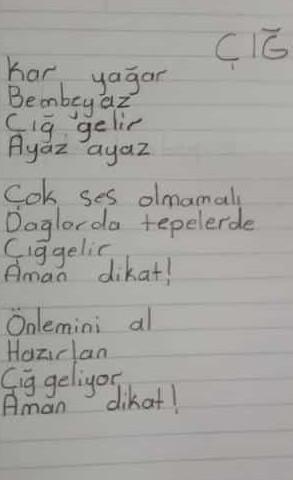 ÇIĞ
Kar yağar
Bembeyaz
Çığ gelir
Ayaz ayaz
Çok ses olmamalı
Dağlarda tepelerde
Çığ gelir
Aman dikat!
Önlemini al
Hazırlan
Çığ geliyor
Aman dikat!